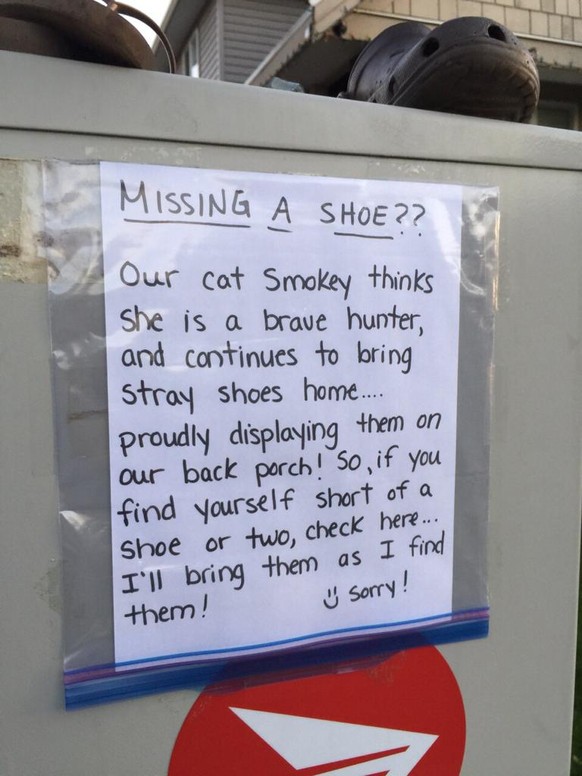 MISSING A SHOE??
Our cat Smokey thinks
she is a brave hunter,
and continues to bring
stray shoes home....
proudly displaying them on
our back porch! So, if you
find yourself short of a
shoe or two, check here...
I'll bring them as I find
them! Sorry!